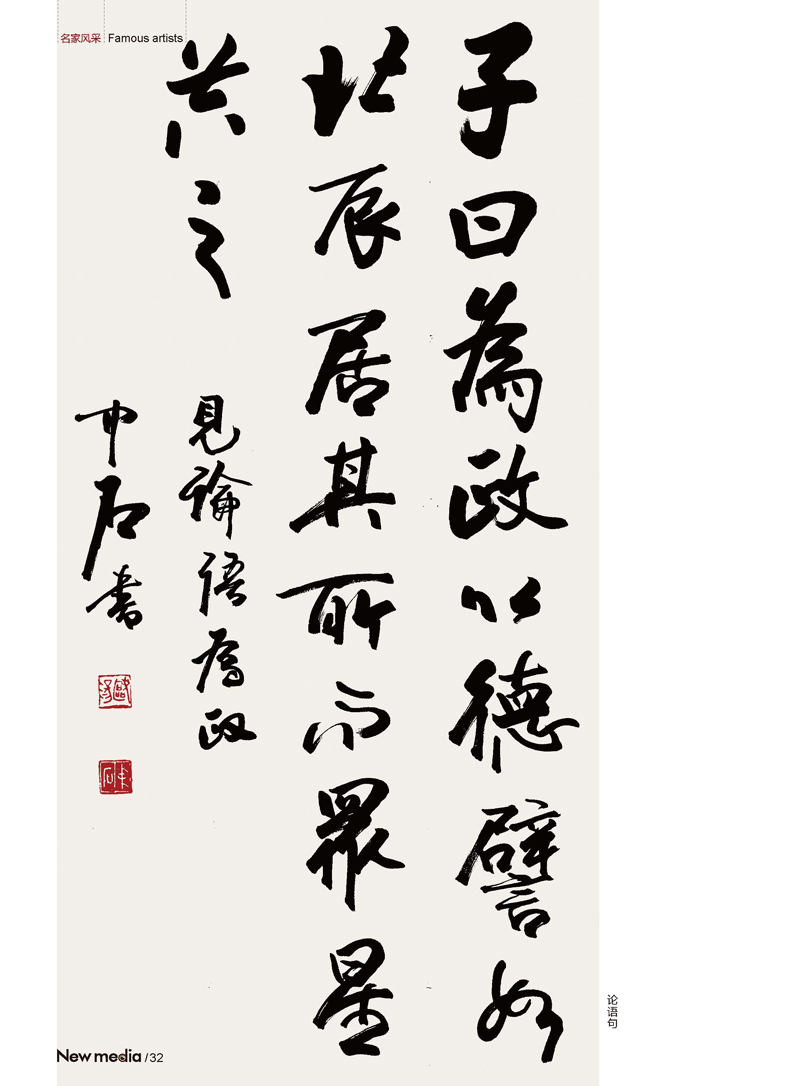 名家风采 Famous artists
子曰為政以德譬如
北辰居其所而眾星
共之
見論語為政
中石書
论语句
New media /32